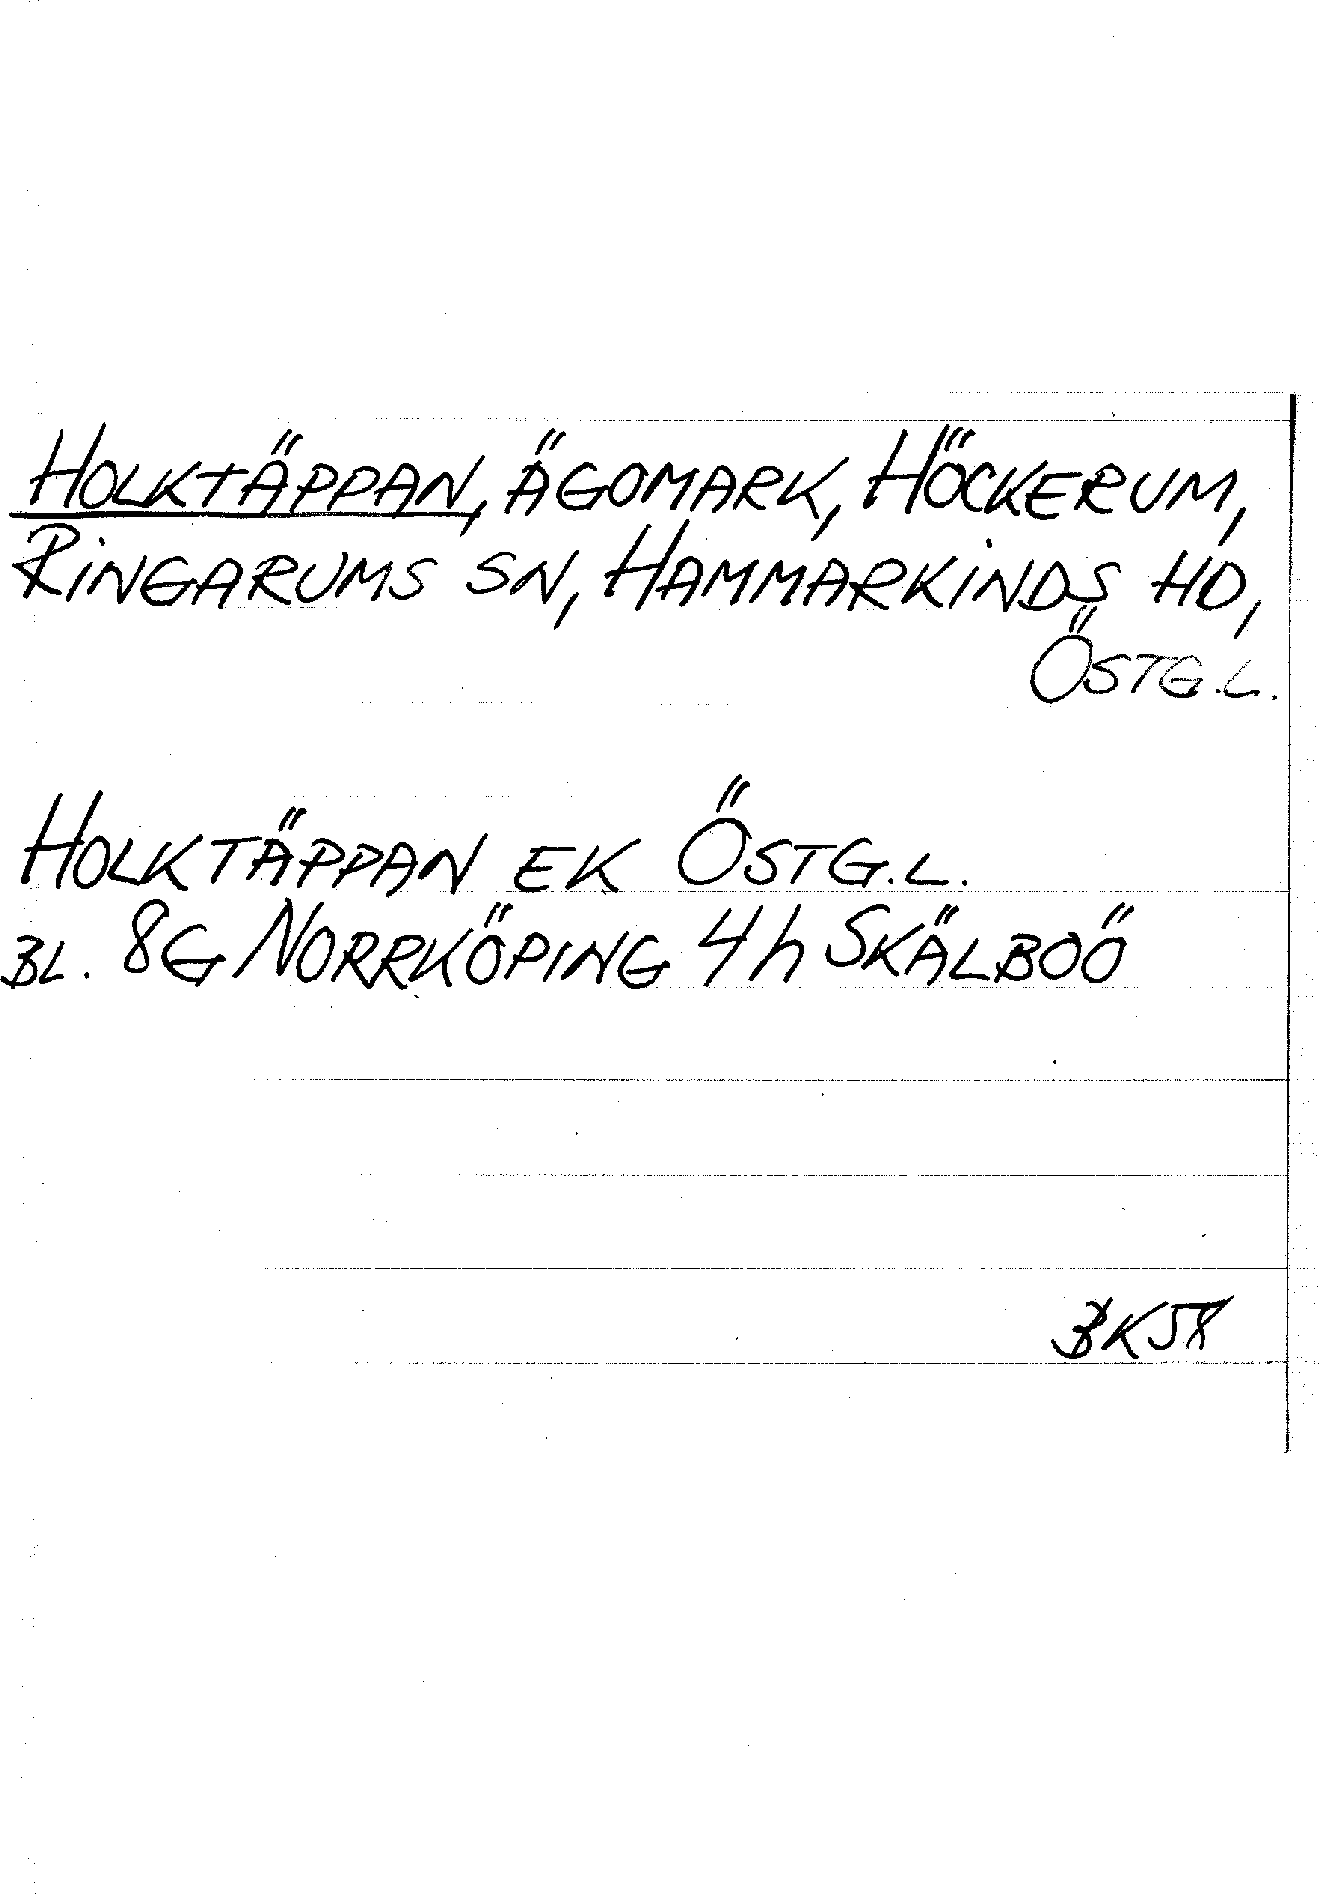 HOLKTÄPPAN, ÄGOMARK, HÖCKERUM,
RINGARUMS SN, HAMMARKINDS HD,
ÖSTG.L.
HOLKTÄPPAN EK ÖSTG.L.
BL. 8G NORRKÖPING 4h SKÄLBOÖ